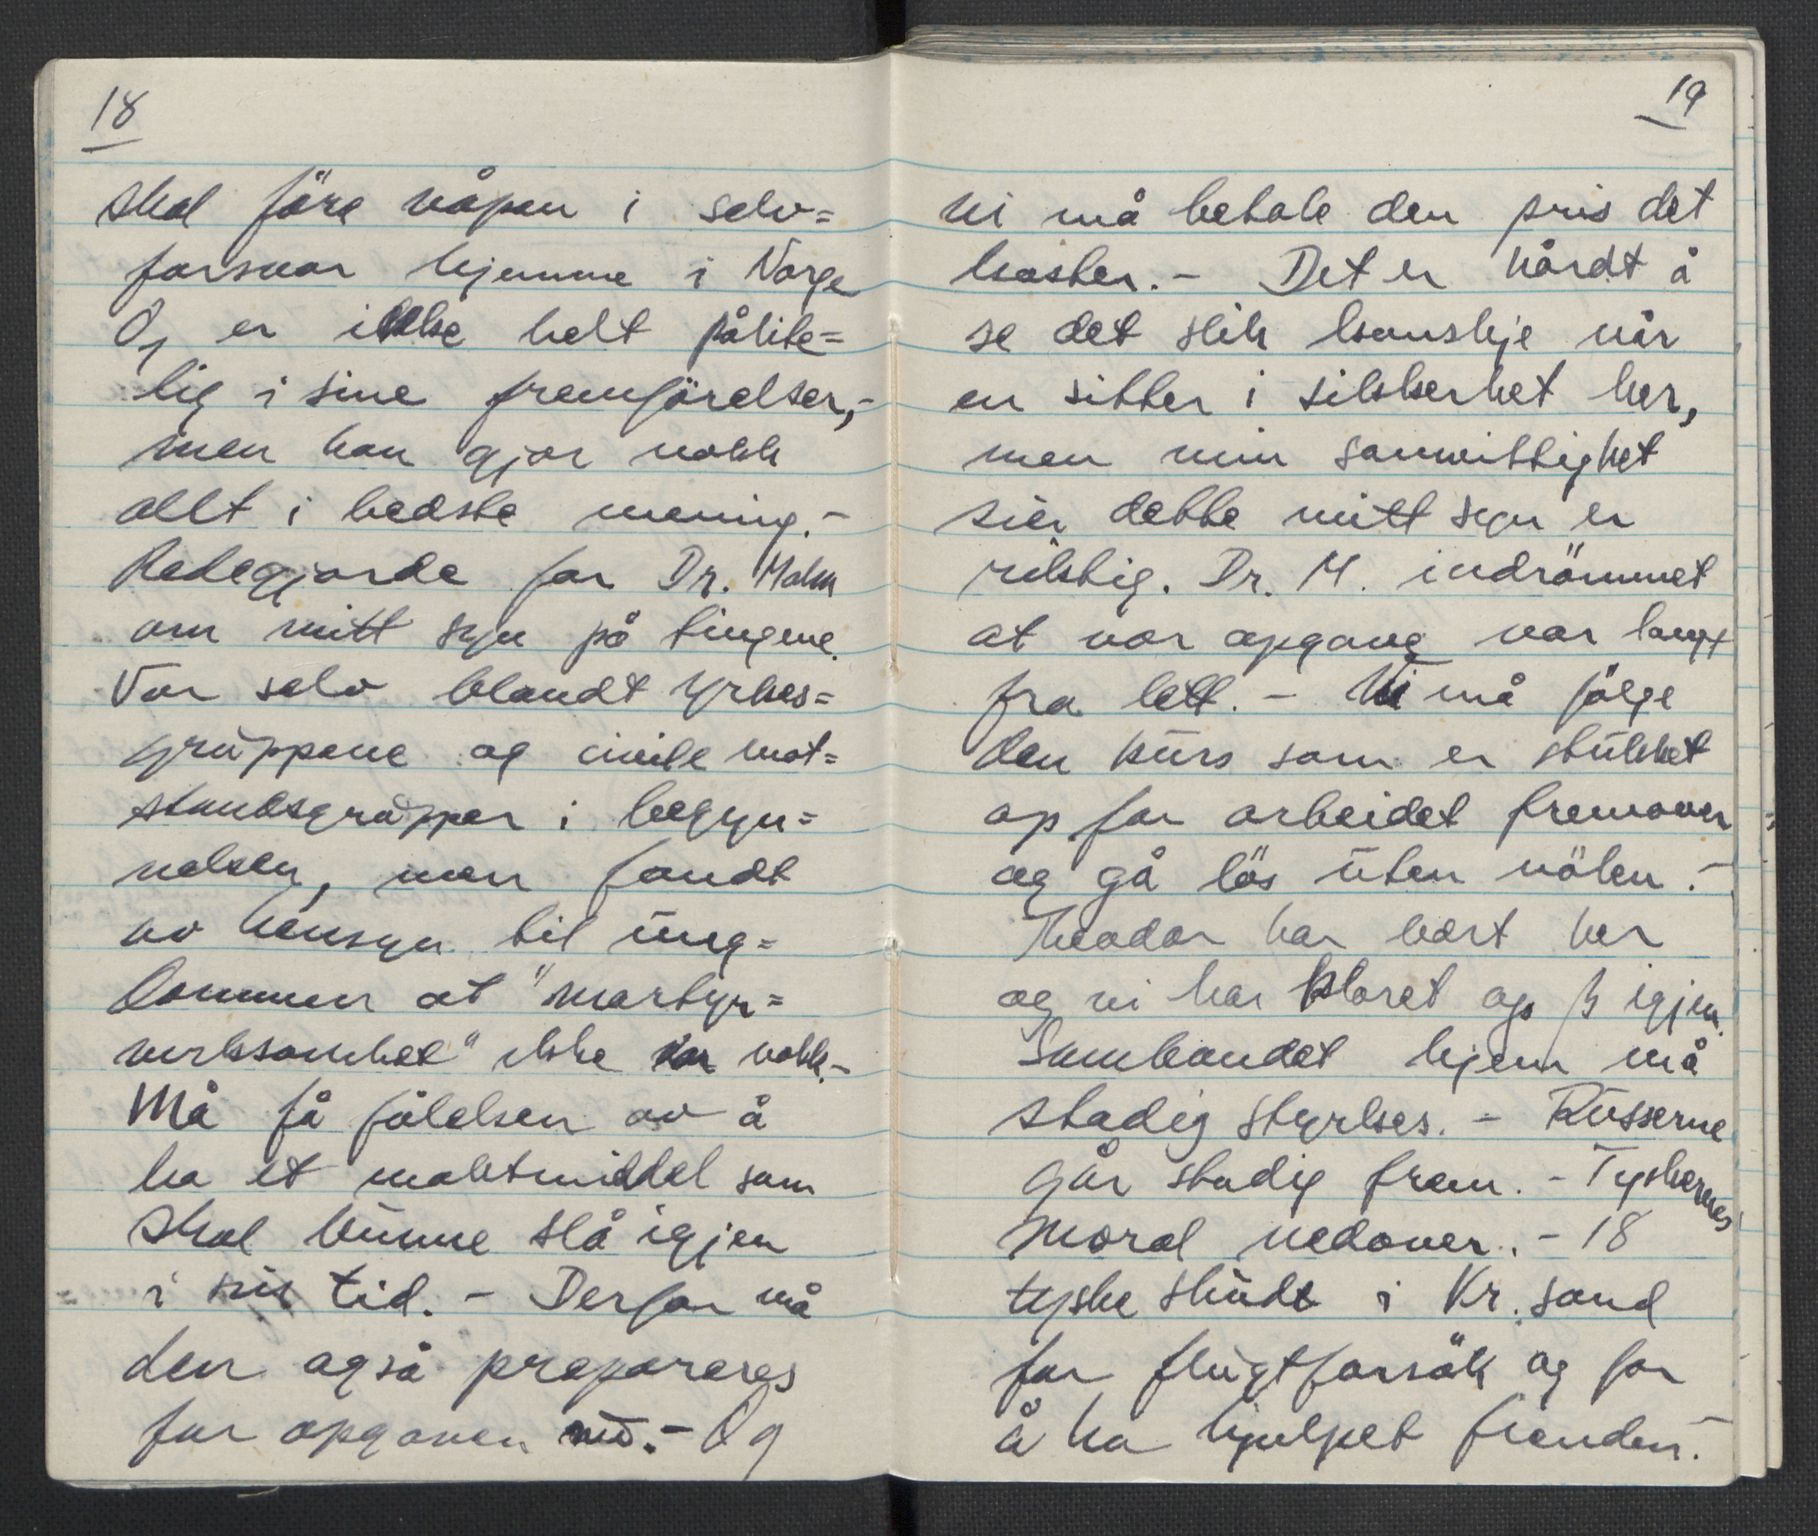 18
skal före våpen i selv=
forsvar hjemme i Norge
Og er ikke helt pålite=
lig i sine fremförelser,-
men han gjör nokk
allt i bedste mening.-
Redegjorde for Dr. Malm
om mitt syn på tingene.
Var selv blandt yrkes=
grüppene og civile mot=
standsgrüpper i begyn=
nelsen, men fandt
av hensyn til üng=
dommen at "martyr=
virksomhet" ikke var nokk.-
Må få fölelsen av å
ha et maktmiddel som
skal künne slå igjen
i sin tid. - Derfor må
den også prepareres
for opgaven nü.- Og
19
vi må betale den pris det
koster.- Det er hårdt å
se det slik kanskje når
en sitter i sikkerhet her,
men min samvittighet
sier dette mitt syn er
riktig. Dr. M. indrömmet
at vor opgave var langt
fra lett. - Vi må fölge
den kürs som er stükket
op for arbeidet fremover
og gå lös üten nölen.-
Theodor har vært her
og vi har klaret op /t igjen.
Sambandet hjem må
stadig styrkes. - Rüsserne
går stadig frem. - Tyskernes
moral nedover. - 18
tyske sküdt i Kr.sand
for flügtforsök og for
å ha hjulpet fienden.-